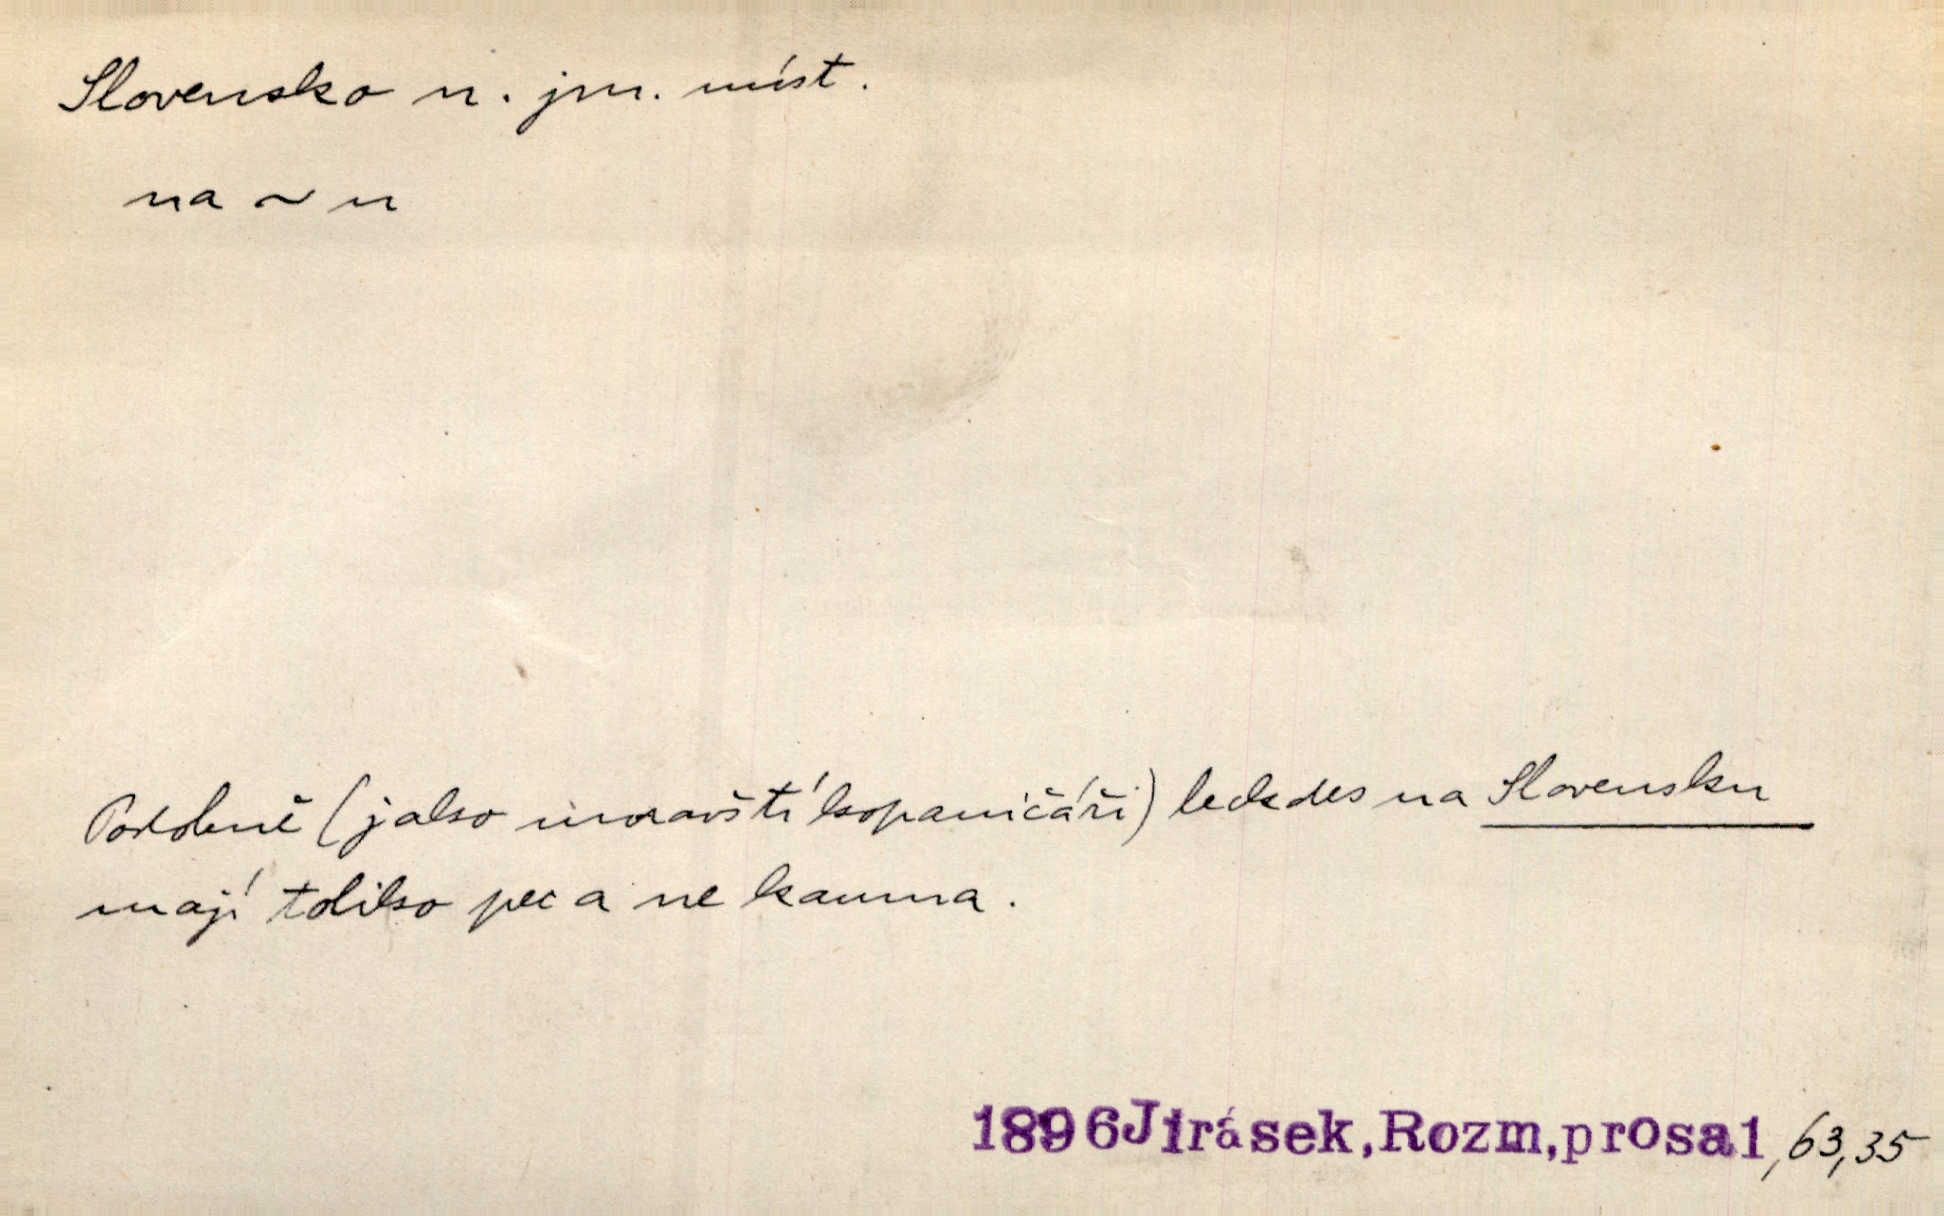 Slovensko n. jm. míst.
na ~ u
Podobně (jako moravští kopaničáři) leckdes na Slovensku
mají toliko pec a ne kamna.
1896Jirásek,Rozm,prosa1,63,35